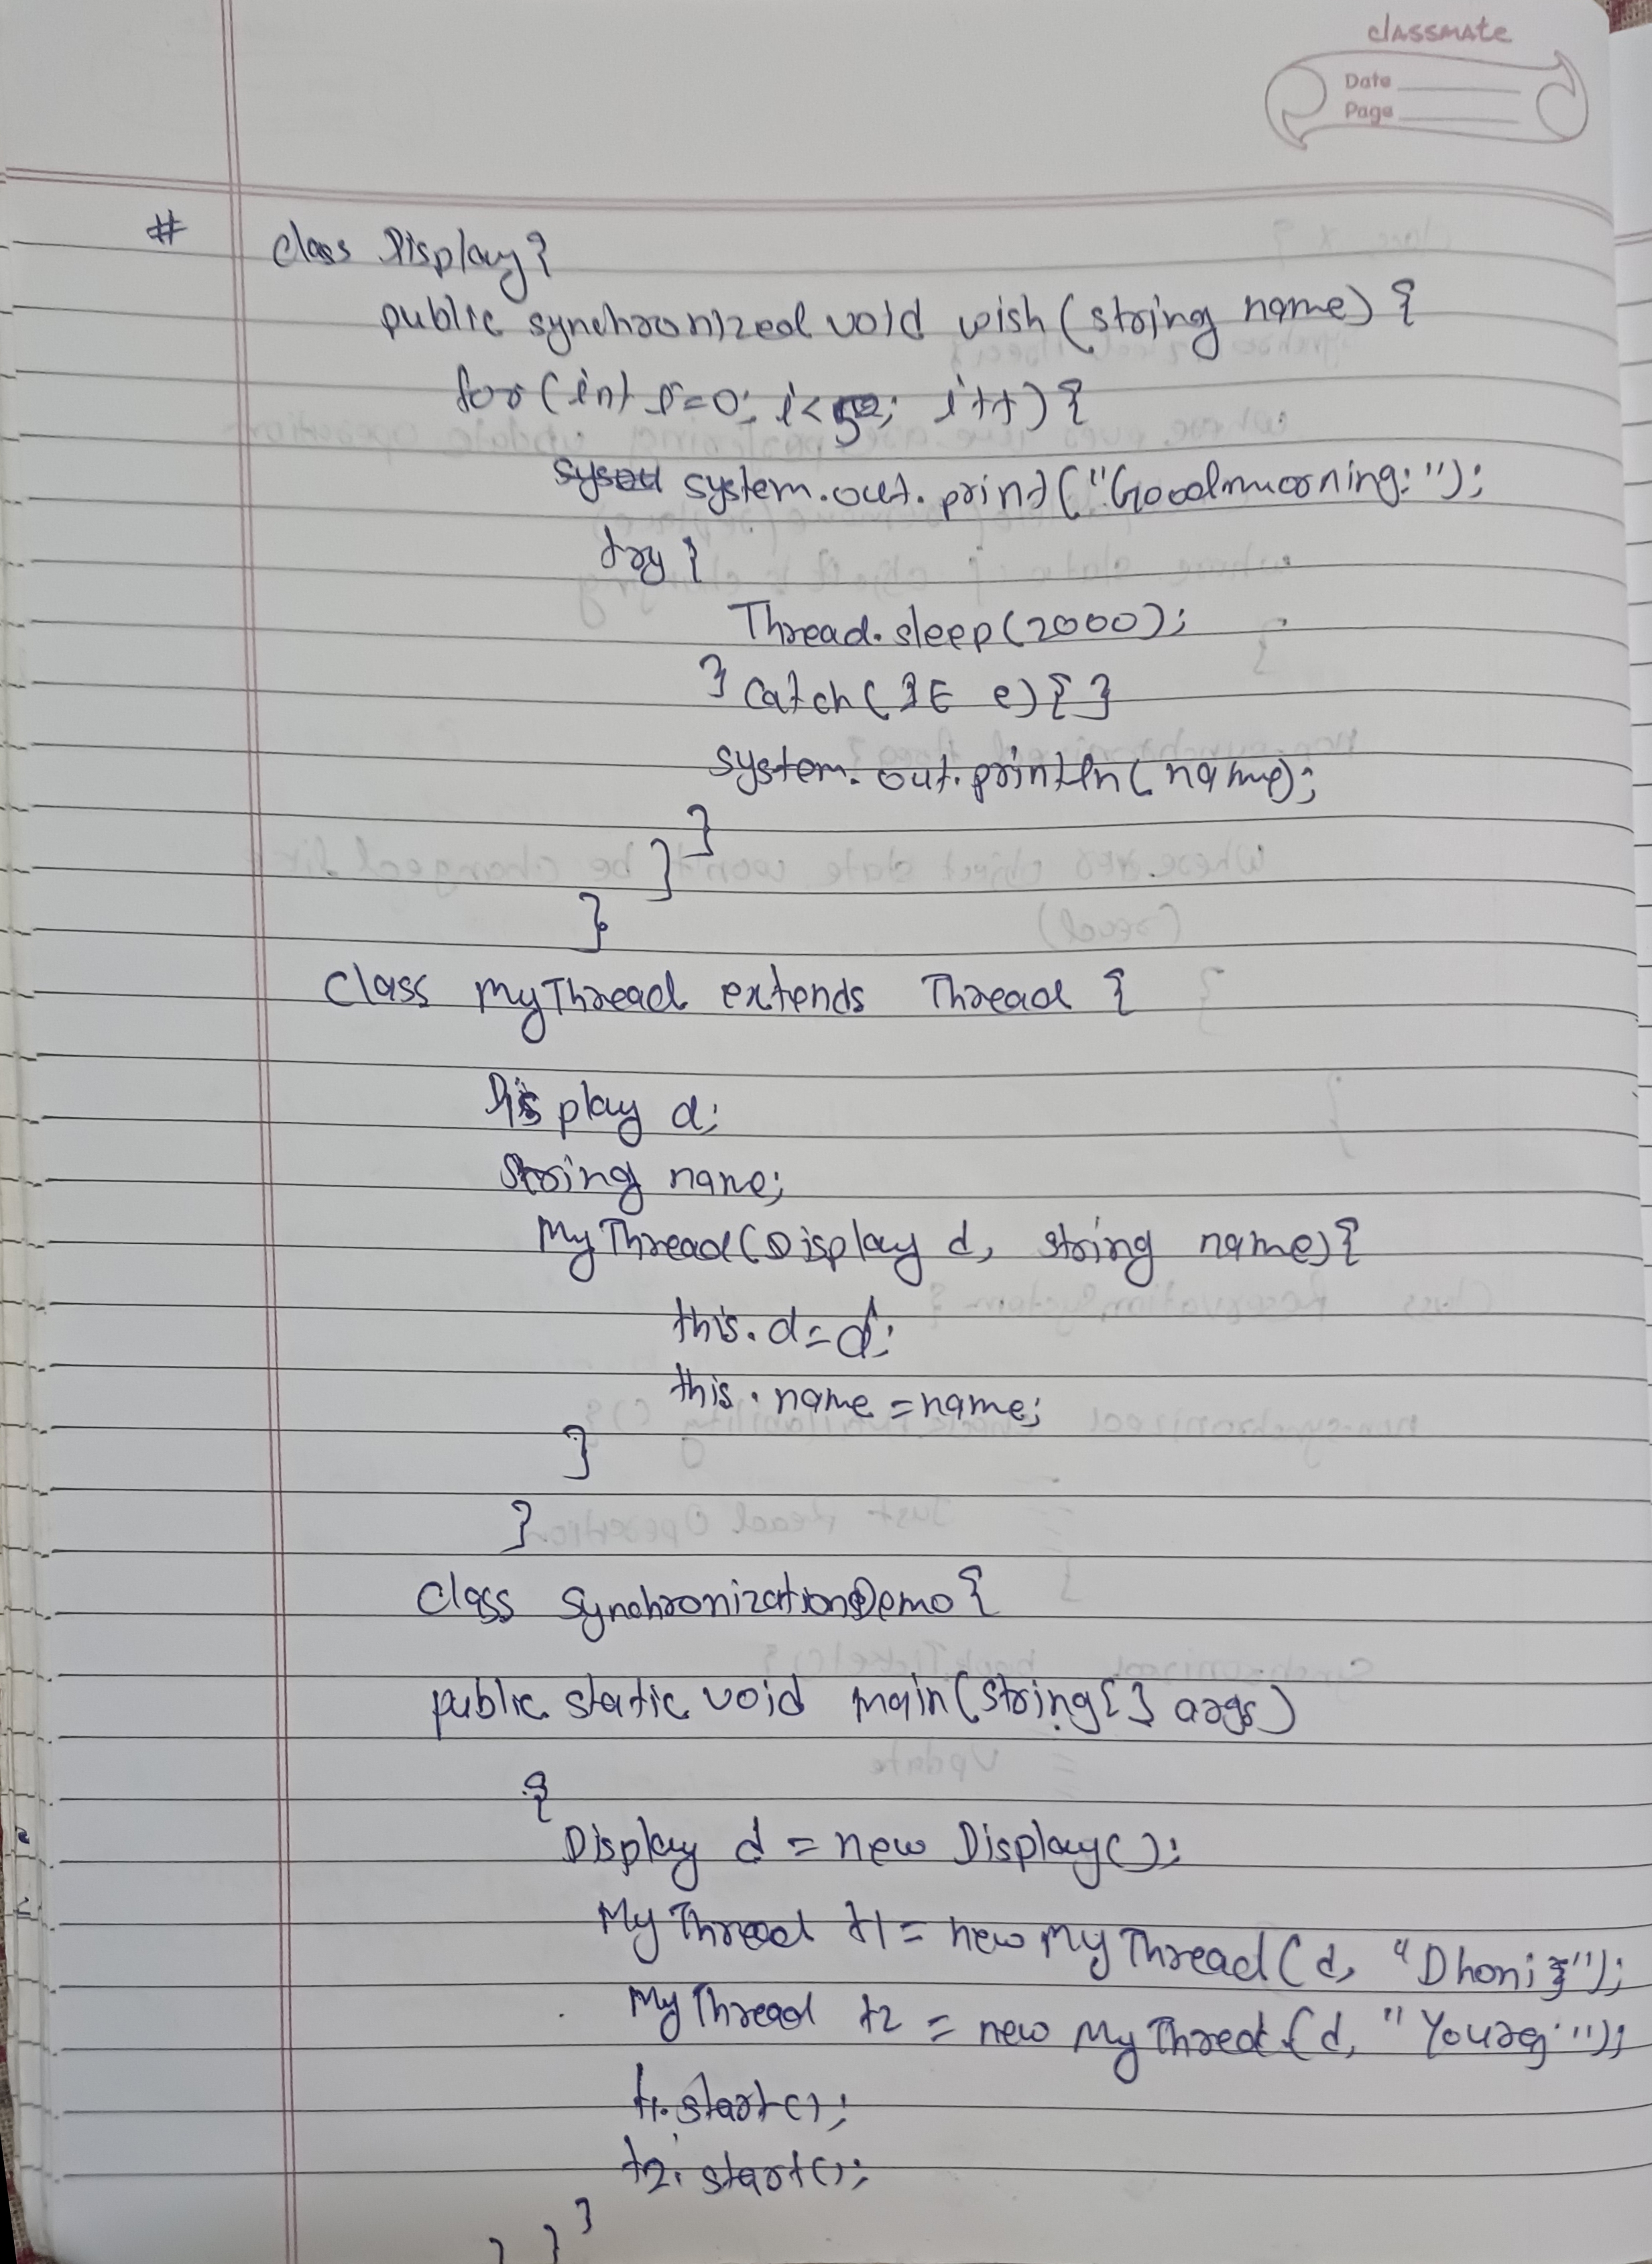 classmate
Date
Page
# class Display{
public synchronized void wish(string name) {
for(int i=0; i<5; i++) {
system.out.print("Goodmuorning:");
try {
Thread.sleep(2000);
} catch(IE e){}
system.out.println(name);
}
}
}
class MyThread extends Thread {
Display d;
String name;
MyThread(Display d, string name){
this.d=d;
this.name=name;
}
}
class SynchronizationDemo{
public static void main(string[] args)
{
Display d = new Display();
MyThread t1 = new MyThread(d, "Dhoni");
MyThread t2 = new MyThread(d, "");
t1.start();
t2.start();
}
}
}